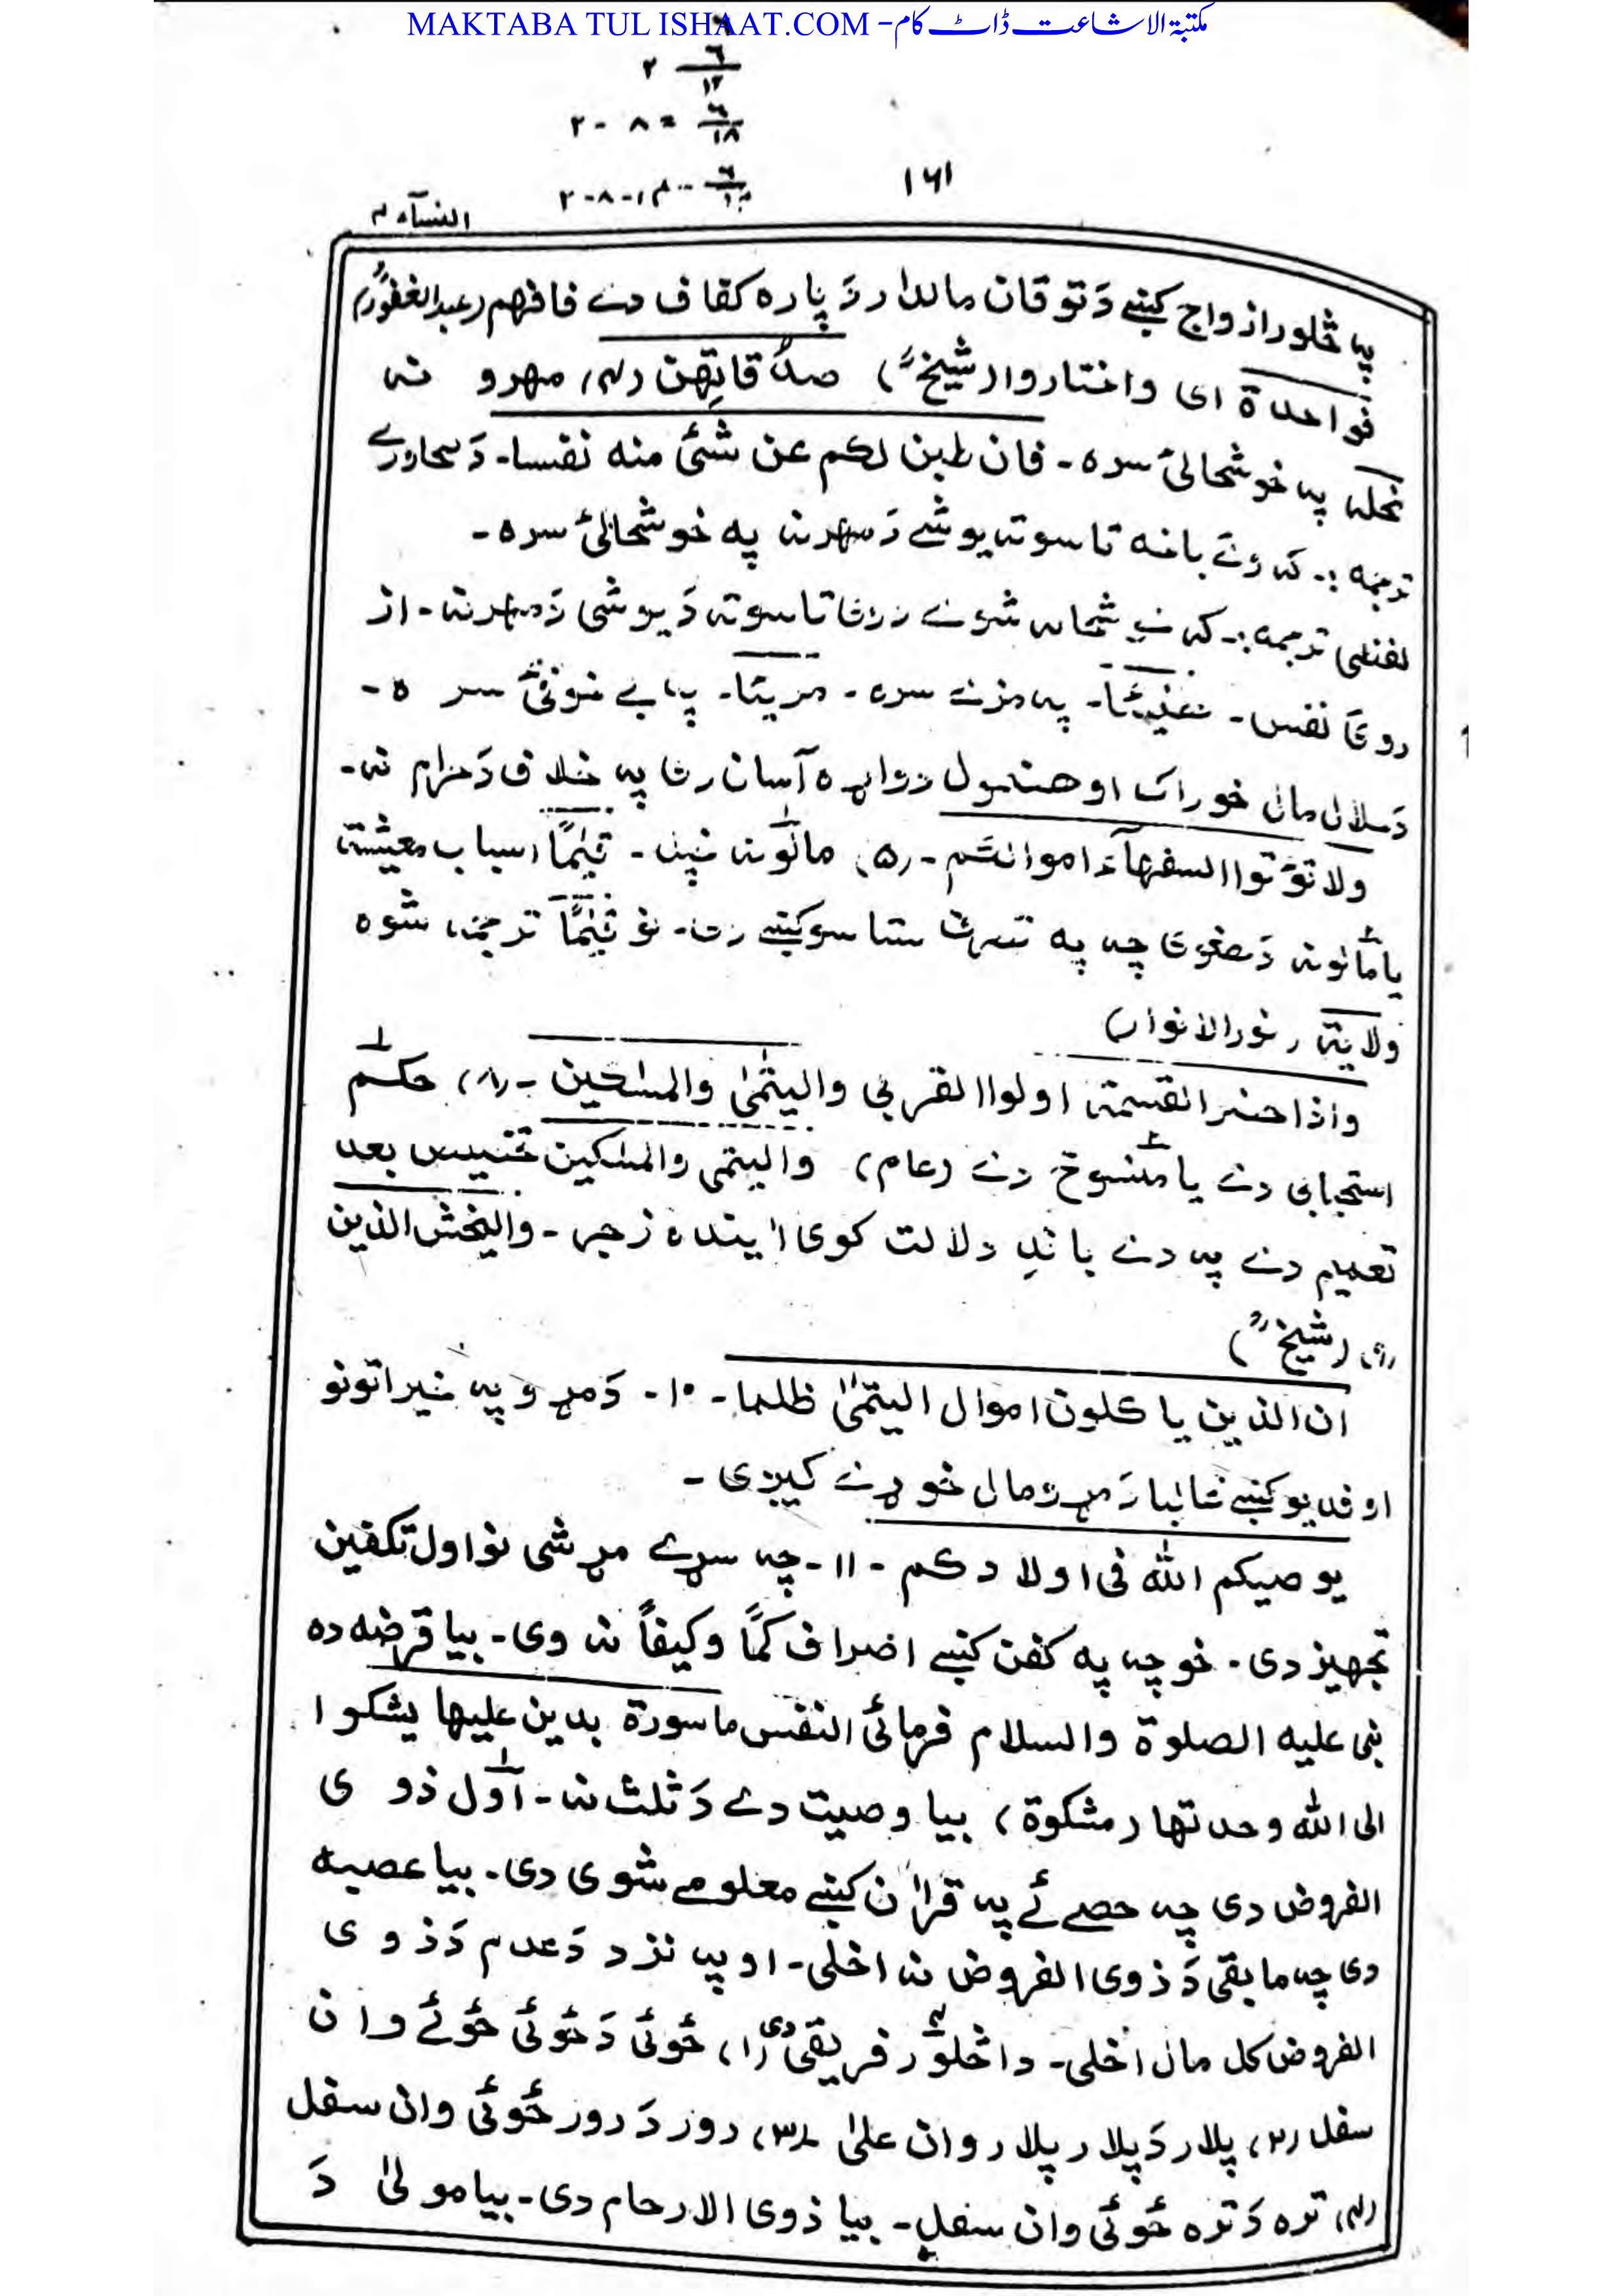 MAKTABA TUL ISHAAT.COM - مکتبۃ الاشاعت ڈاٹ کام
۲ ۶/۱۲
۲ - ۸ = ۶/۱۸
۱۶۱
النسآء ۴
په څلور ازواج کښے دَ توقان مالدار دَ پاره کفاف دے فافهم (عبدالغفورؒ)
فواحدة ای واختاروا (شیخؒ) صدُقاتِهن (۴) مهرو نه
نحلة په خوشحالئ سره - فان طبن لکم عن شئ منه نفسا - دَ محاورے
ترجمه :- که وئے باخه تاسوته یو شے دَ مهر نه په خوشحالئ سره -
لفظی ترجمه :- که خوشحاله شوے دوی تاسوته دَ یو شی دَ مهر نه - از
روئ نفس - هنیئًا - په مزے سره - مریئا - په بے غوفئ سره -
دَ حلال مال خوراک او هضمول دواړه آسان دی په خلاف دَ حرام نه -
ولا تؤتوا السفهآء اموالکم - (۵) مالونه خپل - قیٰمًا اسباب معیشة
یا مالونه دَ هغوی چه په تصرف ستاسو کښے دی - نو قیٰمًا ترجمه شوه
ولایة (نورالانوار)
واذا حضر القسمة اولوا القربی والیتٰمیٰ والمسٰکین - (۸) حکم
استحبابی دے یا منسوخ دے (عام) والیتمی والمسٰکین تخصیص بعد
تعمیم دے په دے باندِ دلالت کوی اٰینده زجر - والیخش الذین
(۹) (شیخؒ)
ان الذین یاکلون اموال الیتٰمیٰ ظلما - ۱۰ - دَ مړو په خیراتونو
او فدیو کښے غالبا دَ مړو مال خوړے کیږی -
یوصیکم الله فی اولادکم - ۱۱ - چه سړے مړ شی نو اول تکفین
تجهیز دی - خو چه په کفن کښے اضراف کمًا وکیفاً نه وی - بیا قرضه ده
نبی علیه الصلوة والسلام فرمائی النفس ماسورة بدین علیها یشکوا
الی الله وحدتها (مشکوة) بیا وصیت دے دَ ثلث نه - اوّل ذوی
الفروض دی چه حصے ئے په قراٰن کښے معلومے شوی دی - بیا عصبه
دی چه مابقی دَ ذوی الفروض نه اخلی - او په نزد دَ عدم دَ ذوی
الفروض کل مال اخلی - دا څلور فریقی دی (۱) ځوئی دَ ځوئی ځوئے وان
سفل (۲) پلار دَ پلار پلار وان علیٰ (۳) رور دَ رور ځوئی وان سفل
(۴) تره دَ تره ځوئی وان سفل - بیا ذوی الارحام دی - بیا مولیٰ دَ